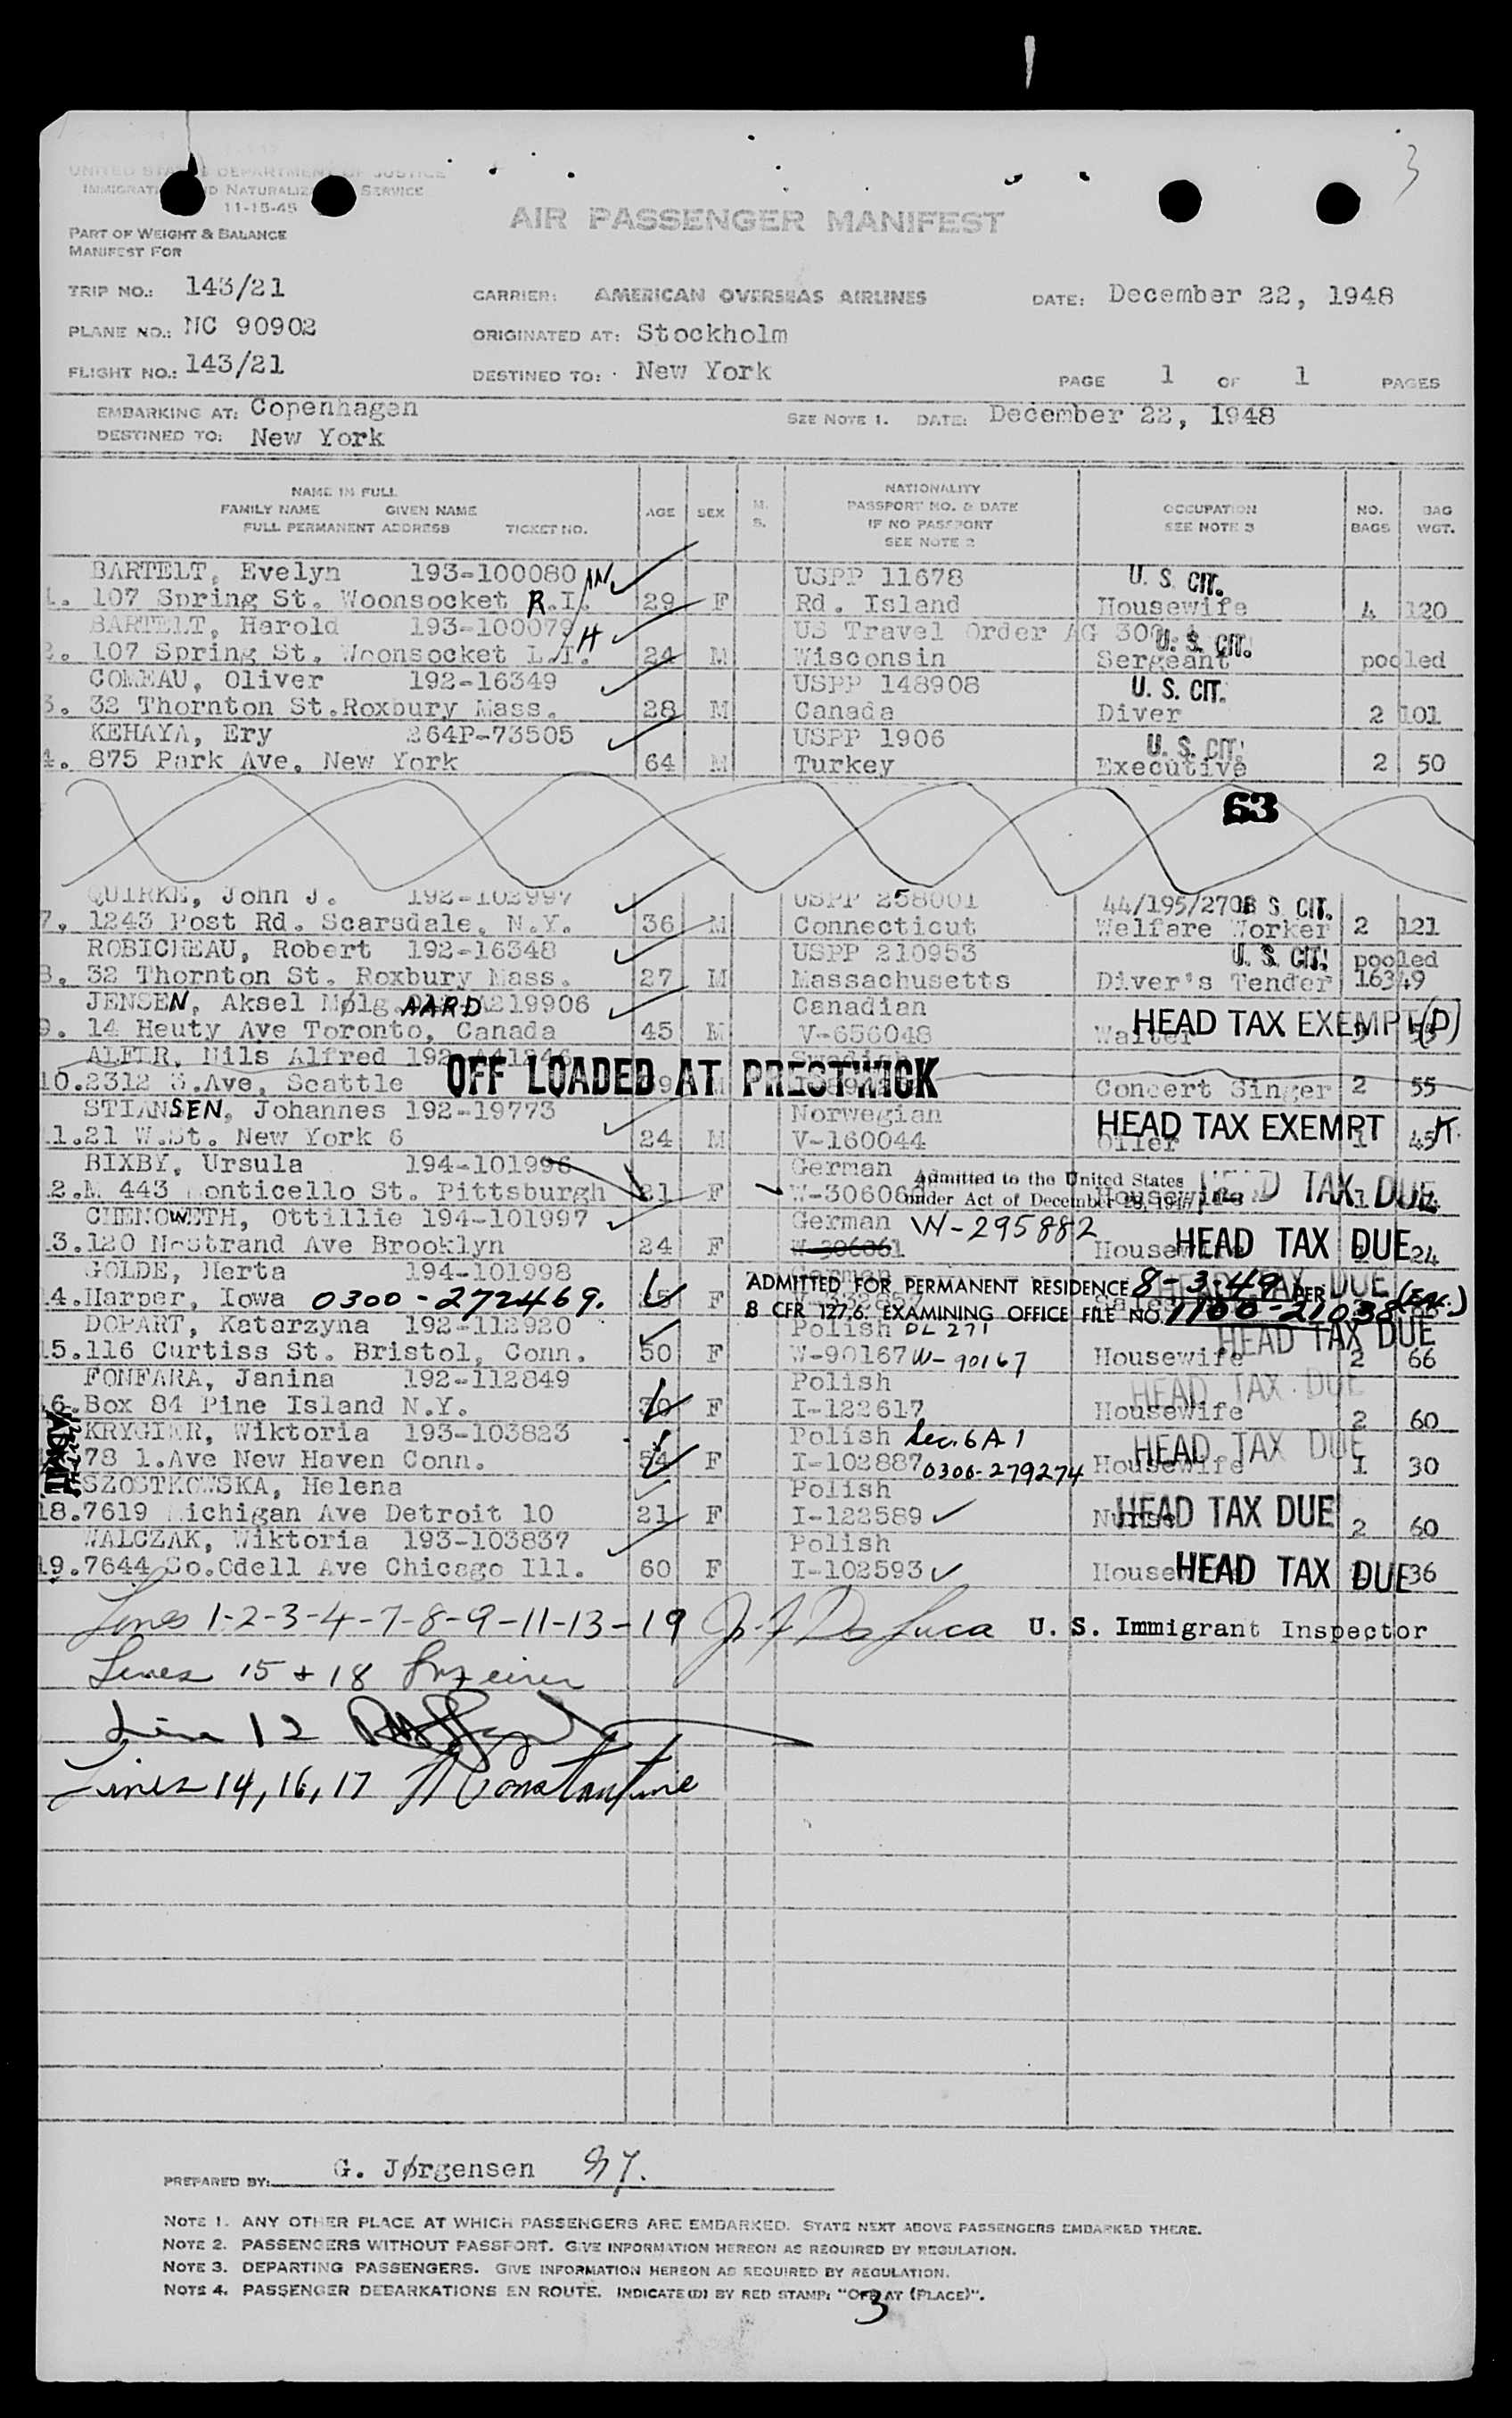 3
UNITED STATES DEPARTMENT OF JUSTICE
IMMIGRATION AND NATURALIZATION SERVICE
11-15-45
AIR PASSENGER MANIFEST
PART OF WEIGHT & BALANCE
MANIFEST FOR
TRIP NO.: 143/21 CARRIER: AMERICAN OVERSEAS AIRLINES DATE: December 22, 1948
PLANE NO.: NC 90902 ORIGINATED AT: Stockholm
FLIGHT NO.: 143/21 DESTINED TO: New York PAGE 1 OF 1 PAGES
EMBARKING AT: Copenhagen SEE NOTE 1. DATE: December 22, 1948
DESTINED TO: New York
NAME IN FULL
FAMILY NAME GIVEN NAME
FULL PERMANENT ADDRESS TICKET NO. AGE SEX M. S. NATIONALITY PASSPORT NO. & DATE IF NO PASSPORT SEE NOTE 2 OCCUPATION SEE NOTE 3 NO. BAGS BAG WGT.
BARTELT, Evelyn 193-100080 USPP 11678 U. S. CIT.
1. 107 Spring St. Woonsocket R.I. 29 F Rd. Island Housewife 4 120
BARTELT, Harold 193-100079 H US Travel Order AG 300.4 U. S. CIT.
2. 107 Spring St. Woonsocket L.I. 24 M Wisconsin Sergeant pooled
COMEAU, Oliver 192-16349 USPP 148908 U. S. CIT.
3. 32 Thornton St.Roxbury Mass. 28 M Canada Diver 2 101
KEHAYA, Ery 264P-73505 USPP 1906 U. S. CIT.
4. 875 Park Ave. New York 64 M Turkey Executive 2 50
63
QUIRKE, John J. 192-102997 USPP 258001 44/195/270 U S. CIT.
7. 1243 Post Rd. Scarsdale, N.Y. 36 M Connecticut Welfare Worker 2 121
ROBICHEAU, Robert 192-16348 USPP 210953 U. S. CIT. pooled
8. 32 Thornton St. Roxbury Mass. 27 M Massachusetts Diver's Tender 16349
JENSEN, Aksel Mølg AARD A219906 Canadian
9. 14 Heuty Ave Toronto, Canada 45 M V-656048 Waiter HEAD TAX EXEMPT (D)
Nils Alfred Swedish
OFF LOADED AT PRESTWICK
10.2312 S.Ave, Seattle M Concert Singer 2 55
STIANSEN, Johannes 192-19773 Norwegian
11.21 W.St. New York 6 24 M V-160044 Oiler HEAD TAX EXEMPT 1 45
BIXBY, Ursula 194-101996 German Admitted to the United States
12.M 443 Monticello St. Pittsburgh 21 F under Act of December 28, 1945 Housewife 1 HEAD TAX DUE
CHENOWETH, Ottillie 194-101997 German W-295882
13.120 Nostrand Ave Brooklyn 24 F W-306061 Housewife HEAD TAX DUE 24
GOLDE, Herta 194-101998 German HEAD TAX DUE
ADMITTED FOR PERMANENT RESIDENCE 8-3-49 PER (Exc.)
14.Harper, Iowa 0300-272469. 25 F 8 CFR 127.6. EXAMINING OFFICE FILE NO. 1100-21038
DOPART, Katarzyna 192-112920 Polish DL 271 HEAD TAX DUE
15.116 Curtiss St. Bristol, Conn. 50 F W-90167 W-90167 Housewife 2 66
FONFARA, Janina 192-112849 Polish HEAD TAX DUE
16.Box 84 Pine Island N.Y. 30 F I-122617 Housewife 2 60
KRYGIER, Wiktoria 193-103823 Polish Sec. 6 A 1 HEAD TAX DUE
ADMIT 78 1.Ave New Haven Conn. 54 F I-102887 0300-279274 Housewife 1 30
SZOSTKOWSKA, Helena Polish
18.7619 Michigan Ave Detroit 10 21 F I-122589 Nurse HEAD TAX DUE 2 60
WALCZAK, Wiktoria 193-103837 Polish
19.7644 So.Odell Ave Chicago Ill. 60 F I-102593 House HEAD TAX DUE 36
Lines 1-2-3-4-7-8-9-11-13-19 J. F. De Luca U. S. Immigrant Inspector
Lines 15 + 18
Line 12
Lines 14, 16, 17 Constantine
PREPARED BY: G. Jørgensen GJ.
NOTE 1. ANY OTHER PLACE AT WHICH PASSENGERS ARE EMBARKED. STATE NEXT ABOVE PASSENGERS EMBARKED THERE.
NOTE 2. PASSENGERS WITHOUT PASSPORT. GIVE INFORMATION HEREON AS REQUIRED BY REGULATION.
NOTE 3. DEPARTING PASSENGERS. GIVE INFORMATION HEREON AS REQUIRED BY REGULATION.
NOTE 4. PASSENGER DEBARKATIONS EN ROUTE. INDICATE (D) BY RED STAMP: "OFF AT (PLACE)".
3